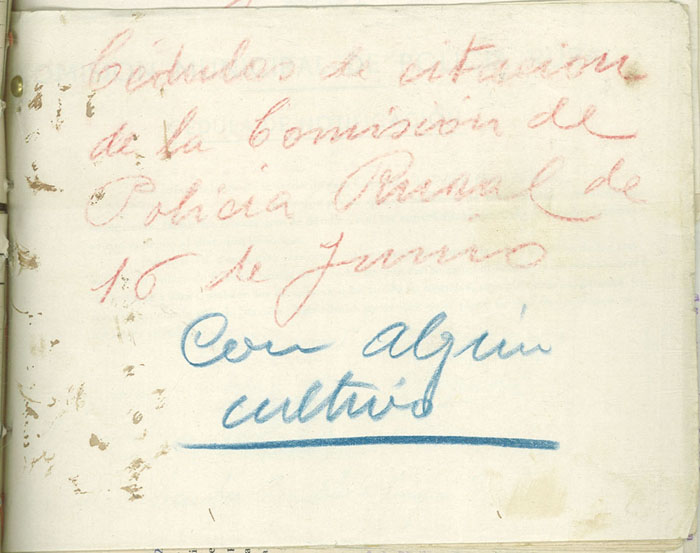 Cédulas de citacion
de la Comisión de
Policia Rural de
16 de Junio
Con algún
cultivo